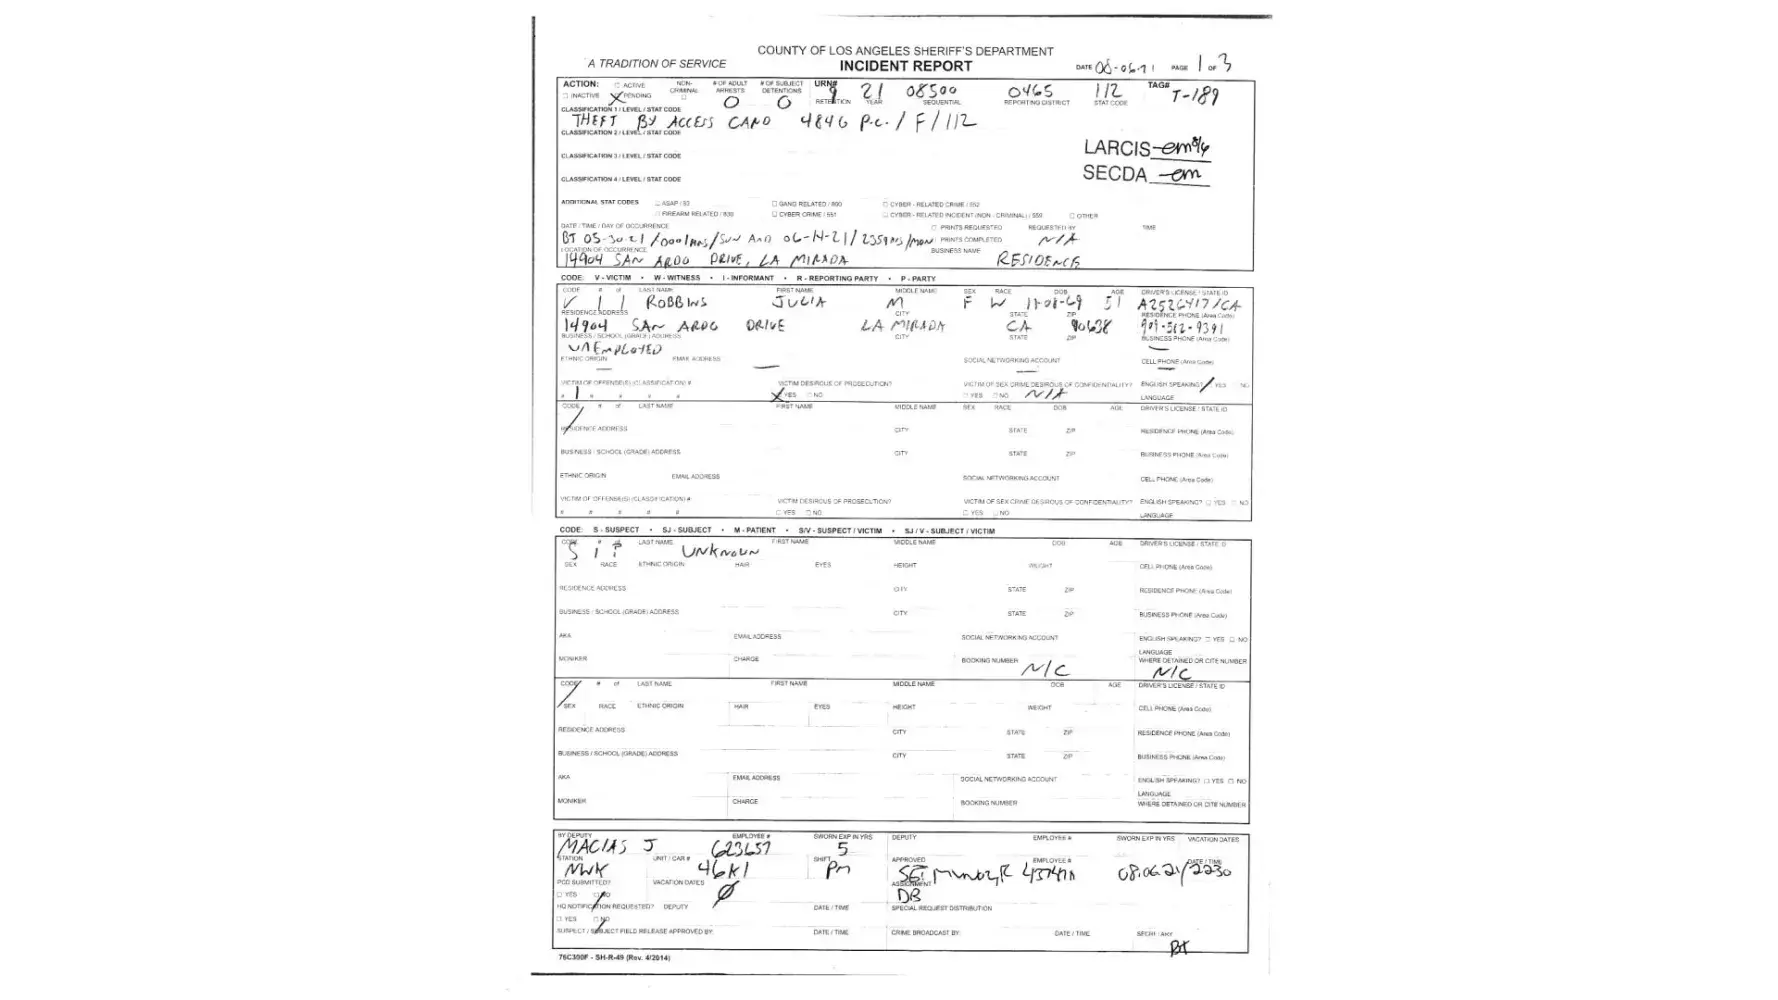 COUNTY OF LOS ANGELES SHERIFF'S DEPARTMENT
A TRADITION OF SERVICE INCIDENT REPORT DATE PAGE 1 OF 3
ACTION: ACTIVE NON-CRIMINAL # OF ADULT ARRESTS # OF SUBJECT DETENTIONS URN# TAG#
INACTIVE X PENDING 0 0 9 21 08500 0465 112 T-189
RETENTION YEAR SEQUENTIAL REPORTING DISTRICT STAT CODE
CLASSIFICATION 1 / LEVEL / STAT CODE
THEFT BY ACCESS CARD 484G P.C. / F / 112
CLASSIFICATION 2 / LEVEL / STAT CODE
LARCIS em
CLASSIFICATION 3 / LEVEL / STAT CODE
SECDA em
CLASSIFICATION 4 / LEVEL / STAT CODE
ADDITIONAL STAT CODES ASAP / 33 GANG RELATED / 860 CYBER - RELATED CRIME / 552
FIREARM RELATED / 830 CYBER CRIME / 551 CYBER - RELATED INCIDENT (NON - CRIMINAL) / 559 OTHER
DATE / TIME / DAY OF OCCURRENCE PRINTS REQUESTED REQUESTED BY TIME
BT 05-30-21 / 0001HRS / SUN AND 06-14-21 / 2359HRS / MON PRINTS COMPLETED N/A
LOCATION OF OCCURRENCE BUSINESS NAME
14904 SAN ARDO DRIVE, LA MIRADA RESIDENCE
CODE: V - VICTIM • W - WITNESS • I - INFORMANT • R - REPORTING PARTY • P - PARTY
CODE # of LAST NAME FIRST NAME MIDDLE NAME SEX RACE DOB AGE DRIVER'S LICENSE / STATE ID
V 1 1 ROBBINS JULIA M F W 11-08-69 51 A2526417/CA
RESIDENCE ADDRESS CITY STATE ZIP RESIDENCE PHONE (Area Code)
14904 SAN ARDO DRIVE LA MIRADA CA 90638 909-562-9391
BUSINESS / SCHOOL (GRADE) ADDRESS CITY STATE ZIP BUSINESS PHONE (Area Code)
UNEMPLOYED —
ETHNIC ORIGIN EMAIL ADDRESS SOCIAL NETWORKING ACCOUNT CELL PHONE (Area Code)
— — — —
VICTIM OF OFFENSE(S) (CLASSIFICATION) # VICTIM DESIROUS OF PROSECUTION? VICTIM OF SEX CRIME DESIROUS OF CONFIDENTIALITY? ENGLISH SPEAKING? YES NO
# 1 # # # # X YES NO YES NO N/A LANGUAGE
CODE # of LAST NAME FIRST NAME MIDDLE NAME SEX RACE DOB AGE DRIVER'S LICENSE / STATE ID
RESIDENCE ADDRESS CITY STATE ZIP RESIDENCE PHONE (Area Code)
BUSINESS / SCHOOL (GRADE) ADDRESS CITY STATE ZIP BUSINESS PHONE (Area Code)
ETHNIC ORIGIN EMAIL ADDRESS SOCIAL NETWORKING ACCOUNT CELL PHONE (Area Code)
VICTIM OF OFFENSE(S) (CLASSIFICATION) # VICTIM DESIROUS OF PROSECUTION? VICTIM OF SEX CRIME DESIROUS OF CONFIDENTIALITY? ENGLISH SPEAKING? YES NO
# # # # # YES NO YES NO LANGUAGE
CODE: S - SUSPECT • SJ - SUBJECT • M - PATIENT • S/V - SUSPECT / VICTIM • SJ / V - SUBJECT / VICTIM
CODE # of LAST NAME FIRST NAME MIDDLE NAME DOB AGE DRIVER'S LICENSE / STATE ID
S 1 ? UNKNOWN
SEX RACE ETHNIC ORIGIN HAIR EYES HEIGHT WEIGHT CELL PHONE (Area Code)
RESIDENCE ADDRESS CITY STATE ZIP RESIDENCE PHONE (Area Code)
BUSINESS / SCHOOL (GRADE) ADDRESS CITY STATE ZIP BUSINESS PHONE (Area Code)
AKA EMAIL ADDRESS SOCIAL NETWORKING ACCOUNT ENGLISH SPEAKING? YES NO
LANGUAGE
MONIKER CHARGE BOOKING NUMBER WHERE DETAINED OR CITE NUMBER
N/C N/C
CODE # of LAST NAME FIRST NAME MIDDLE NAME DOB AGE DRIVER'S LICENSE / STATE ID
SEX RACE ETHNIC ORIGIN HAIR EYES HEIGHT WEIGHT CELL PHONE (Area Code)
RESIDENCE ADDRESS CITY STATE ZIP RESIDENCE PHONE (Area Code)
BUSINESS / SCHOOL (GRADE) ADDRESS CITY STATE ZIP BUSINESS PHONE (Area Code)
AKA EMAIL ADDRESS SOCIAL NETWORKING ACCOUNT ENGLISH SPEAKING? YES NO
LANGUAGE
MONIKER CHARGE BOOKING NUMBER WHERE DETAINED OR CITE NUMBER
BY DEPUTY EMPLOYEE # SWORN EXP IN YRS DEPUTY EMPLOYEE # SWORN EXP IN YRS VACATION DATES
MACIAS J 623657 5
STATION UNIT / CAR # SHIFT APPROVED EMPLOYEE # DATE / TIME
NWK 46K1 PM SGT 08.06.21/2230
POD SUBMITTED? VACATION DATES ASSIGNMENT
YES NO Ø DB
HQ NOTIFICATION REQUESTED? DEPUTY DATE / TIME SPECIAL REQUEST DISTRIBUTION
YES NO
SUSPECT / SUBJECT FIELD RELEASE APPROVED BY: DATE / TIME CRIME BROADCAST BY: DATE / TIME SECRETARY
76C300F - SH-R-49 (Rev. 4/2014)